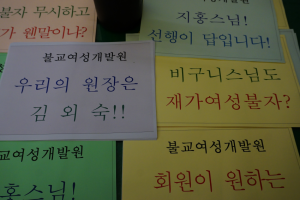 불자 무시하고
가 웬말이냐?
지홍스님!
선행이 답입니다!
불교여성개발원
우리의 원장은
김외숙!!
비구니스님도
재가여성불자?
교여성개발원
홍스님!
불교여성개발원
회원이 원하는